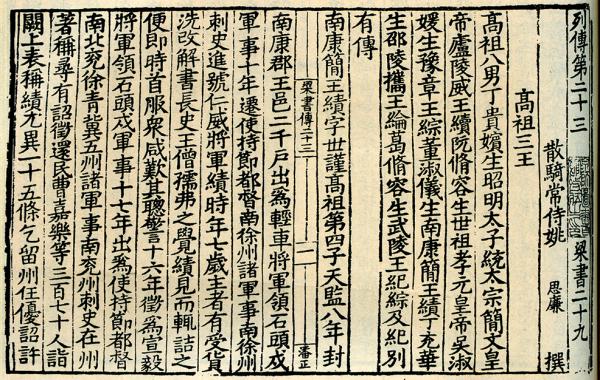 列傳第二十三　梁書二十九
散騎常侍姚思廉撰
高祖三王
高祖八男丁貴嬪生昭明太子統太宗簡文皇
帝廬陵威王續阮脩容生世祖孝元皇帝吳淑
媛生豫章王綜董淑儀生南康簡王績丁充華
生邵陵攜王綸葛脩容生武陵王紀綜及紀別
有傳
南康簡王績字世謹高祖第四子天監八年封
梁書傳二十三　一　潘正
南康郡王邑二千戶出爲輕車將軍領石頭戍
軍事十年遷使持節都督南徐州諸軍事南徐州
刺史進號仁威將軍績時年七歲主者有受貨
洗改解書長史王僧孺弗之覺績見而輒詰之
便即時首服衆咸歎其聰警十六年徵爲宣毅
將軍領石頭戍軍事十七年出爲使持節都督
南北兗徐青冀五州諸軍事南兗州刺史在州
著稱尋有詔徵還民曹嘉樂等三百七十人詣
闕上表稱績尤異一十五條乞留州任優詔許